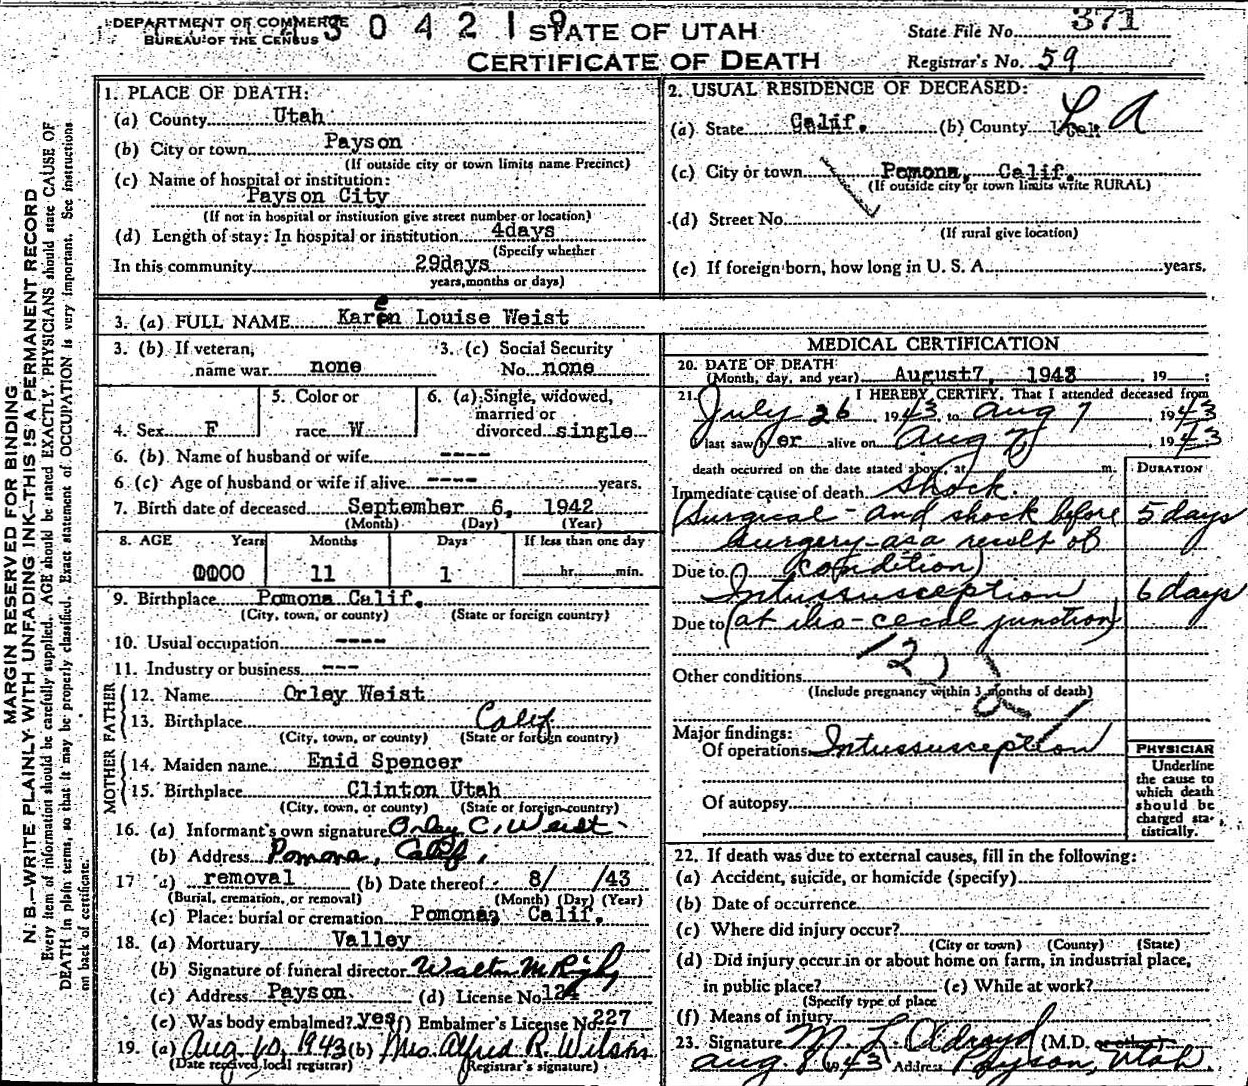 DEPARTMENT OF COMMERCE
BUREAU OF THE CENSUS
3 0 4 2 1 9
STATE OF UTAH
CERTIFICATE OF DEATH
State File No. 371
Registrar's No. 59
MARGIN RESERVED FOR BINDING
N. B.—WRITE PLAINLY WITH UNFADING INK—THIS IS A PERMANENT RECORD
Every item of information should be carefully supplied. AGE should be stated EXACTLY. PHYSICIANS should state CAUSE OF
DEATH in plain terms, so that it may be properly classified. Exact statement of OCCUPATION is very important. See instructions
on back of certificate.
1. PLACE OF DEATH:
(a) County Utah
(b) City or town Payson
(If outside city or town limits name Precinct)
(c) Name of hospital or institution:
Payson City
(If not in hospital or institution give street number or location)
(d) Length of stay: In hospital or institution 4days
(Specify whether
In this community 29days
years, months or days)
2. USUAL RESIDENCE OF DECEASED:
(a) State Calif. (b) County L A
(c) City or town Pomona, Calif.
(If outside city or town limits write RURAL)
(d) Street No.
(If rural give location)
(e) If foreign born, how long in U. S. A. years.
3. (a) FULL NAME Karen Louise Weist
e
3. (b) If veteran, name war none
3. (c) Social Security No. none
4. Sex F
5. Color or race W
6. (a) Single, widowed, married or divorced single
6. (b) Name of husband or wife ----
6 (c) Age of husband or wife if alive ---- years.
7. Birth date of deceased September 6, 1942
(Month) (Day) (Year)
8. AGE Years Months Days If less than one day
11 1 hr. min.
9. Birthplace Pomona Calif.
(City, town, or county) (State or foreign country)
10. Usual occupation ----
11. Industry or business ---
FATHER
12. Name Orley Weist
13. Birthplace Calif
(City, town, or county) (State or foreign country)
MOTHER
14. Maiden name Enid Spencer
15. Birthplace Clinton Utah
(City, town, or county) (State or foreign country)
16. (a) Informant's own signature Orley C. Weist
(b) Address Pomona, Calif.
17 (a) removal (b) Date thereof 8/ /43
(Burial, cremation, or removal) (Month) (Day) (Year)
(c) Place: burial or cremation Pomona, Calif.
18. (a) Mortuary Valley
(b) Signature of funeral director
(c) Address Payson (d) License No. 124
(e) Was body embalmed? yes (f) Embalmer's License No. 227
19. (a) Aug 10, 1943 (b) Mrs Alfred R. Wilson
(Date received local registrar) (Registrar's signature)
MEDICAL CERTIFICATION
20. DATE OF DEATH
(Month, day, and year) August7, 1943 , 19 ;
21. I HEREBY CERTIFY, That I attended deceased from
July 26 1943 to Aug 7 , 1943
I last saw her alive on Aug 7, , 1943
death occurred on the date stated above, at m.
DURATION
Immediate cause of death Shock.
(Surgical - and shock before 5 days
surgery - as a result of
Due to condition)
Intussusception 6 days
Due to (at ileo-cecal junction)
Other conditions
(Include pregnancy within 3 months of death)
Major findings:
Of operations Intussusception
Of autopsy
PHYSICIAN
Underline
the cause to
which death
should be
charged sta-
tistically.
22. If death was due to external causes, fill in the following:
(a) Accident, suicide, or homicide (specify)
(b) Date of occurrence
(c) Where did injury occur?
(City or town) (County) (State)
(d) Did injury occur in or about home on farm, in industrial place,
in public place? (e) While at work?
(Specify type of place
(f) Means of injury
23. Signature M. L. Oldroyd (M.D. or other)
Aug. 8 1943 Address Payson, Utah